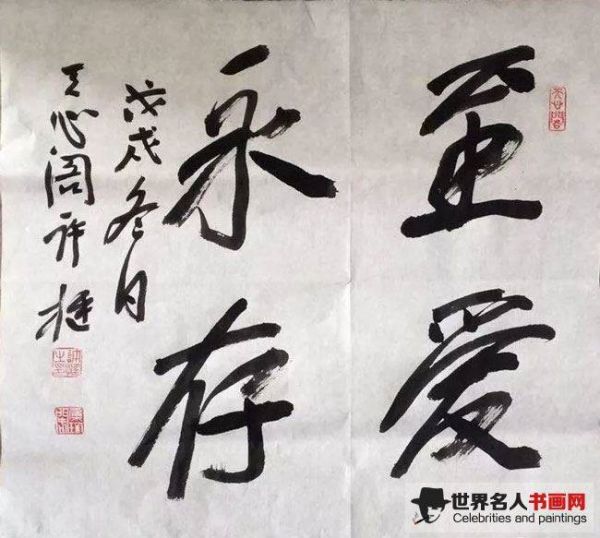 至爱
永存
戊戌冬日
天心阁许
世界名人书画网
Celebrities and paintings